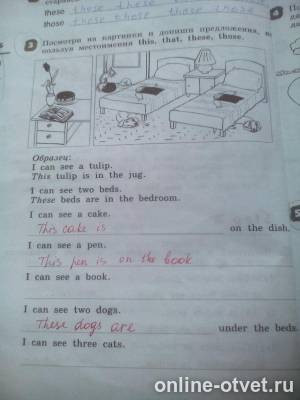 these these these these
those those those these those
3 Посмотри на картинки и допиши предложения, ис
пользуя местоимения this, that, these, those.
Образец:
I can see a tulip.
This tulip is in the jug.
I can see two beds.
These beds are in the bedroom.
I can see a cake.
This cake is on the dish.
I can see a pen.
This pen is on the book
I can see a book.
I can see two dogs.
These dogs are under the beds.
I can see three cats.
online-otvet.ru